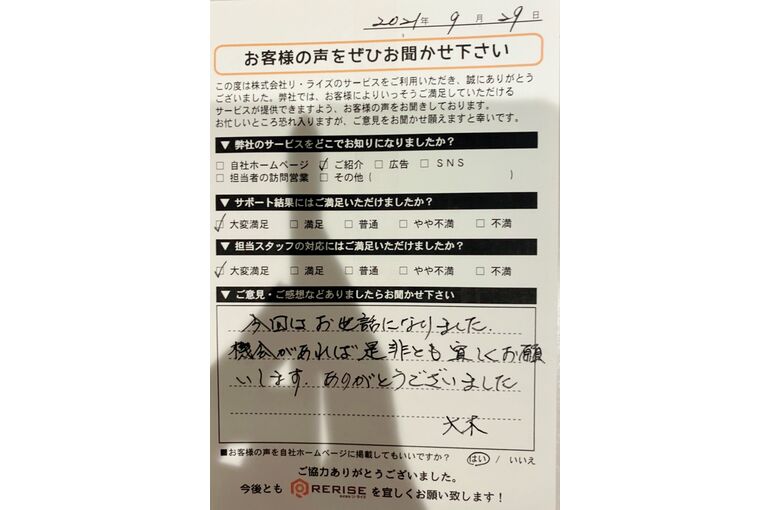 2021年 9月 29日
お客様の声をぜひお聞かせ下さい
この度は株式会社リ・ライズのサービスをご利用いただき、誠にありがとう
ございました。弊社では、お客様によりいっそうご満足していただける
サービスが提供できますよう、お客様の声をお聞きしております。
お忙しいところ恐れ入りますが、ご意見をお聞かせ願えますと幸いです。
▼ 弊社のサービスをどこでお知りになりましたか？
□ 自社ホームページ ☑ ご紹介 □ 広告 □ SNS
□ 担当者の訪問営業 □ その他 ( )
▼ サポート結果にはご満足いただけましたか？
☑ 大変満足 □ 満足 □ 普通 □ やや不満 □ 不満
▼ 担当スタッフの対応にはご満足いただけましたか？
☑ 大変満足 □ 満足 □ 普通 □ やや不満 □ 不満
▼ ご意見・ご感想などありましたらお聞かせ下さい
今回はお世話になりました.
機会があれば是非とも宜しくお願
いします. ありがとうございました
大木
■お客様の声を自社ホームページに掲載してもいいですか？ はい / いいえ
ご協力ありがとうございました。
今後とも RERISE 株式会社リ・ライズ を宜しくお願い致します！